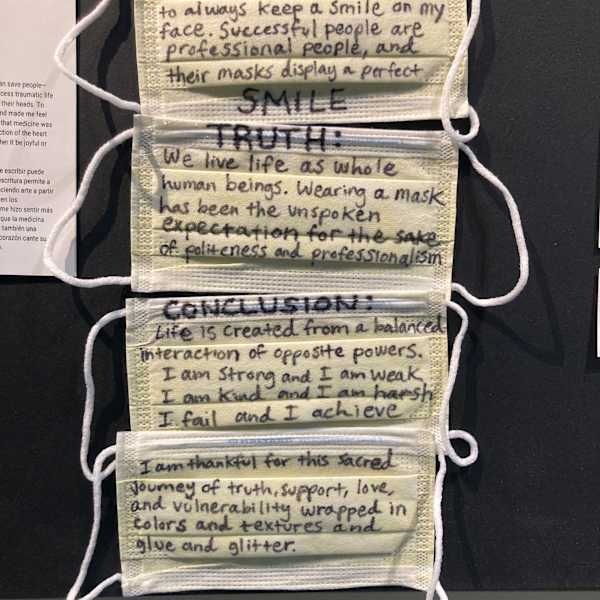 to always keep a smile on my
face. Successful people are
professional people, and
their masks display a perfect
SMILE
TRUTH:
We live life as whole
human beings. Wearing a mask
has been the unspoken
expectation for the sake
of politeness and professionalism
CONCLUSION:
Life is created from a balanced
interaction of opposite powers.
I am strong and I am weak
I am kind and I am harsh
I fail and I achieve
I am thankful for this sacred
journey of truth, support, love,
and vulnerability wrapped in
colors and textures and
glue and glitter.
an save people—
cess traumatic life
their heads. To
nd made me feel
that medicine was
ction of the heart
her it be joyful or
e escribir puede
scritura permite a
ciendo arte a partir
en los
me hizo sentir más
que la medicina
también una
corazón cante su